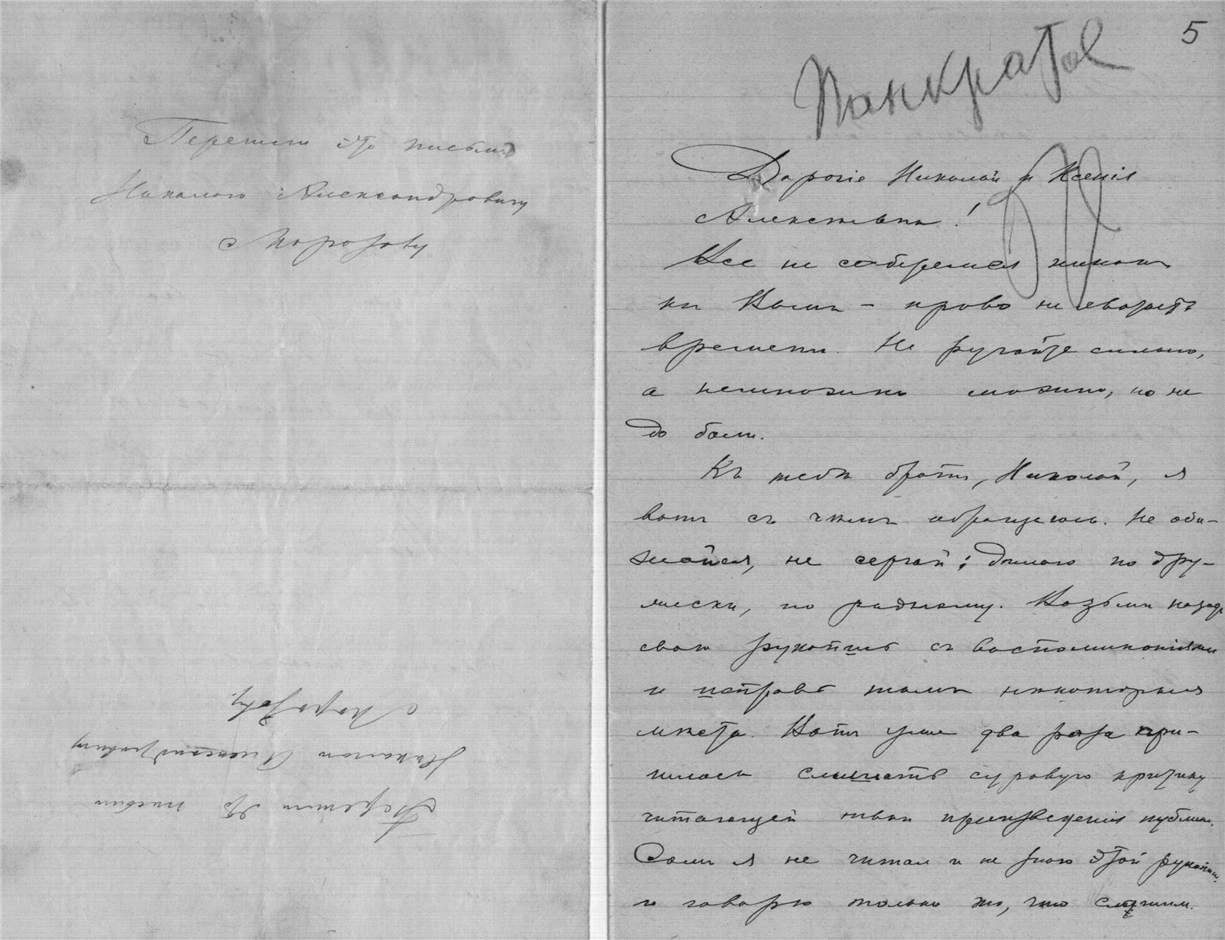 Перешли это письмо
Николаю Александровичу
Морозову
Морозову.
Николаю Александровичу
Перешли это письмо
5
Панкратов
Дорогіе Николай и Ксенія
Алексѣевна!
Все не соберемся никакъ
къ Вамъ – право не хватаетъ
времени. Не ругайте сильно,
а немножко можно, но не
до боли.
Къ тебѣ братъ, Николай, я
вотъ съ чѣмъ обращаюсь. Не оби-
жайся, не серчай: дѣлаю по дру-
жески, по родному. Возьми назадъ
свою рукопись съ воспоминаніями
и исправь тамъ некоторыя
мѣста. Вотъ уже два раза при-
шлось слышать суровую критику
читающей твои произведенія публики.
Самъ я не читал и не знаю этой рукописи,
и говорю только то, что слышал.